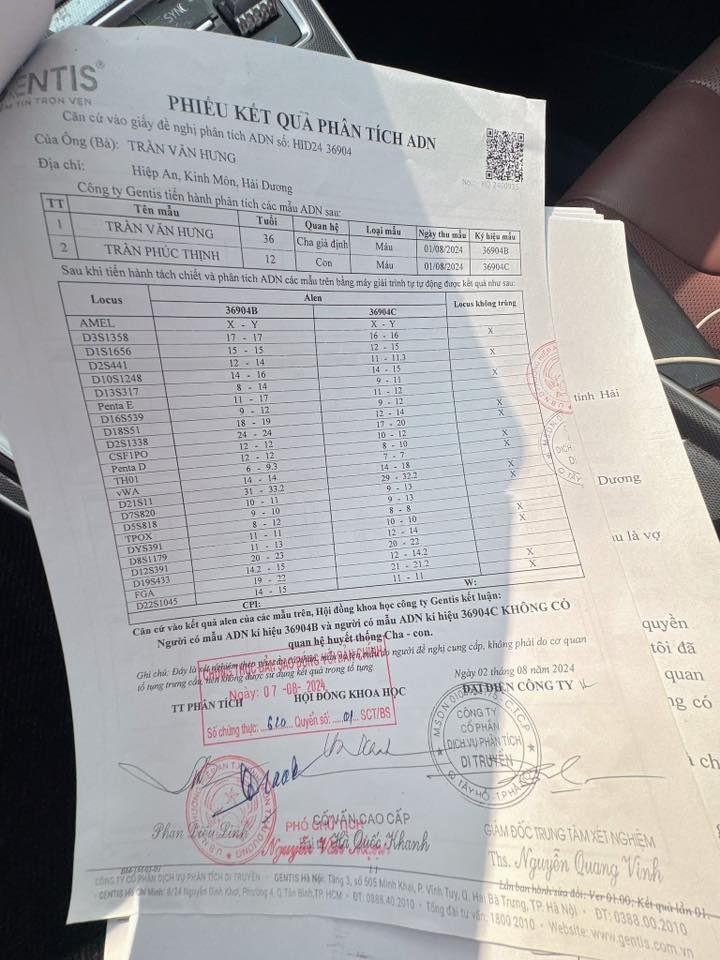 SYNC
GENTIS®
TIN TRỌN VẸN
PHIẾU KẾT QUẢ PHÂN TÍCH ADN
Căn cứ vào giấy đề nghị phân tích ADN số: HID24 36904
Của Ông (Bà): TRẦN VĂN HƯNG
Địa chỉ: Hiệp An, Kinh Môn, Hải Dương
Công ty Gentis tiến hành phân tích các mẫu ADN sau:
TT Tên mẫu Tuổi Quan hệ Loại mẫu Ngày thu mẫu Ký hiệu mẫu
1 TRẦN VĂN HƯNG 36 Cha giả định Máu 01/08/2024 36904B
2 TRẦN PHÚC THỊNH 12 Con Máu 01/08/2024 36904C
Sau khi tiến hành tách chiết và phân tích ADN các mẫu trên bằng máy giải trình tự tự động được kết quả như sau:
Locus Alen Locus không trùng
36904B 36904C
AMEL X - Y X - Y
D3S1358 17 - 17 16 - 16 X
D1S1656 15 - 15 12 - 15
D2S441 12 - 14 11 - 11.3 X
D10S1248 14 - 16 14 - 15
D13S317 8 - 14 9 - 11 X
Penta E 11 - 17 9 - 12 X
D16S539 9 - 12 12 - 14
D18S51 18 - 19 17 - 20 X
D2S1338 24 - 24 10 - 12 X
CSF1PO 12 - 12 8 - 10
Penta D 12 - 12 7 - 7 X
TH01 6 - 9.3 14 - 18
vWA 14 - 14 29 - 32.2 X
D21S11 31 - 33.2 9 - 13 X
D7S820 10 - 11 9 - 13
D5S818 9 - 10 8 - 8 X
TPOX 8 - 12 10 - 10 X
DYS391 11 - 11 12 - 14
D8S1179 11 - 13 20 - 22 X
D12S391 20 - 23 12 - 14.2 X
D19S433 14.2 - 15 21 - 21.2
FGA 19 - 22 11 - 11 X
D22S1045 14 - 15 X
CPI: W:
Căn cứ vào kết quả alen của các mẫu trên, Hội đồng khoa học công ty Gentis kết luận:
Người có mẫu ADN kí hiệu 36904B và người có mẫu ADN kí hiệu 36904C KHÔNG CÓ
quan hệ huyết thống Cha - con.
Ghi chú: Đây là xét nghiệm theo người đề nghị cung cấp, không phải do cơ quan
tố tụng trưng cầu, nên không được sử dụng kết quả trong tố tụng.
CHỨNG THỰC BẢN SAO ĐÚNG VỚI BẢN CHÍNH
Ngày: 07 -08- 2024
Số chứng thực: 610 Quyển số: 01 SCT/BS
Ngày 02 tháng 08 năm 2024
TT PHÂN TÍCH HỘI ĐỒNG KHOA HỌC ĐẠI DIỆN CÔNG TY
CÔNG TY
CỔ PHẦN
DỊCH VỤ PHÂN TÍCH
DI TRUYỀN
Q. TÂY HỒ - T.P HÀ
Phan Diệu Linh
PHÓ CHỦ TỊCH
CỐ VẤN CAO CẤP
Hà Quốc Khanh
Nguyễn Văn
GIÁM ĐỐC TRUNG TÂM XÉT NGHIỆM
Ths. Nguyễn Quang Vinh
Lần ban hành sửa đổi: Ver 01.00; Kết quả lần 01.
CÔNG TY CỔ PHẦN DỊCH VỤ PHÂN TÍCH DI TRUYỀN - GENTIS Hà Nội: Tầng 3, số 505 Minh Khai, P. Vĩnh Tuy, Q. Hai Bà Trưng, TP. Hà Nội - ĐT: 0388.00.2010
GENTIS Hồ Chí Minh: 8/24 Nguyễn Đình Khơi, Phường 4, Q.Tân Bình, TP. HCM - ĐT: 0888.40.2010 - Tổng đài tư vấn: 1800 2010 - Website: www.gentis.com.vn
tỉnh Hải
Dương
là vợ
quyền
tôi đã
quan
có